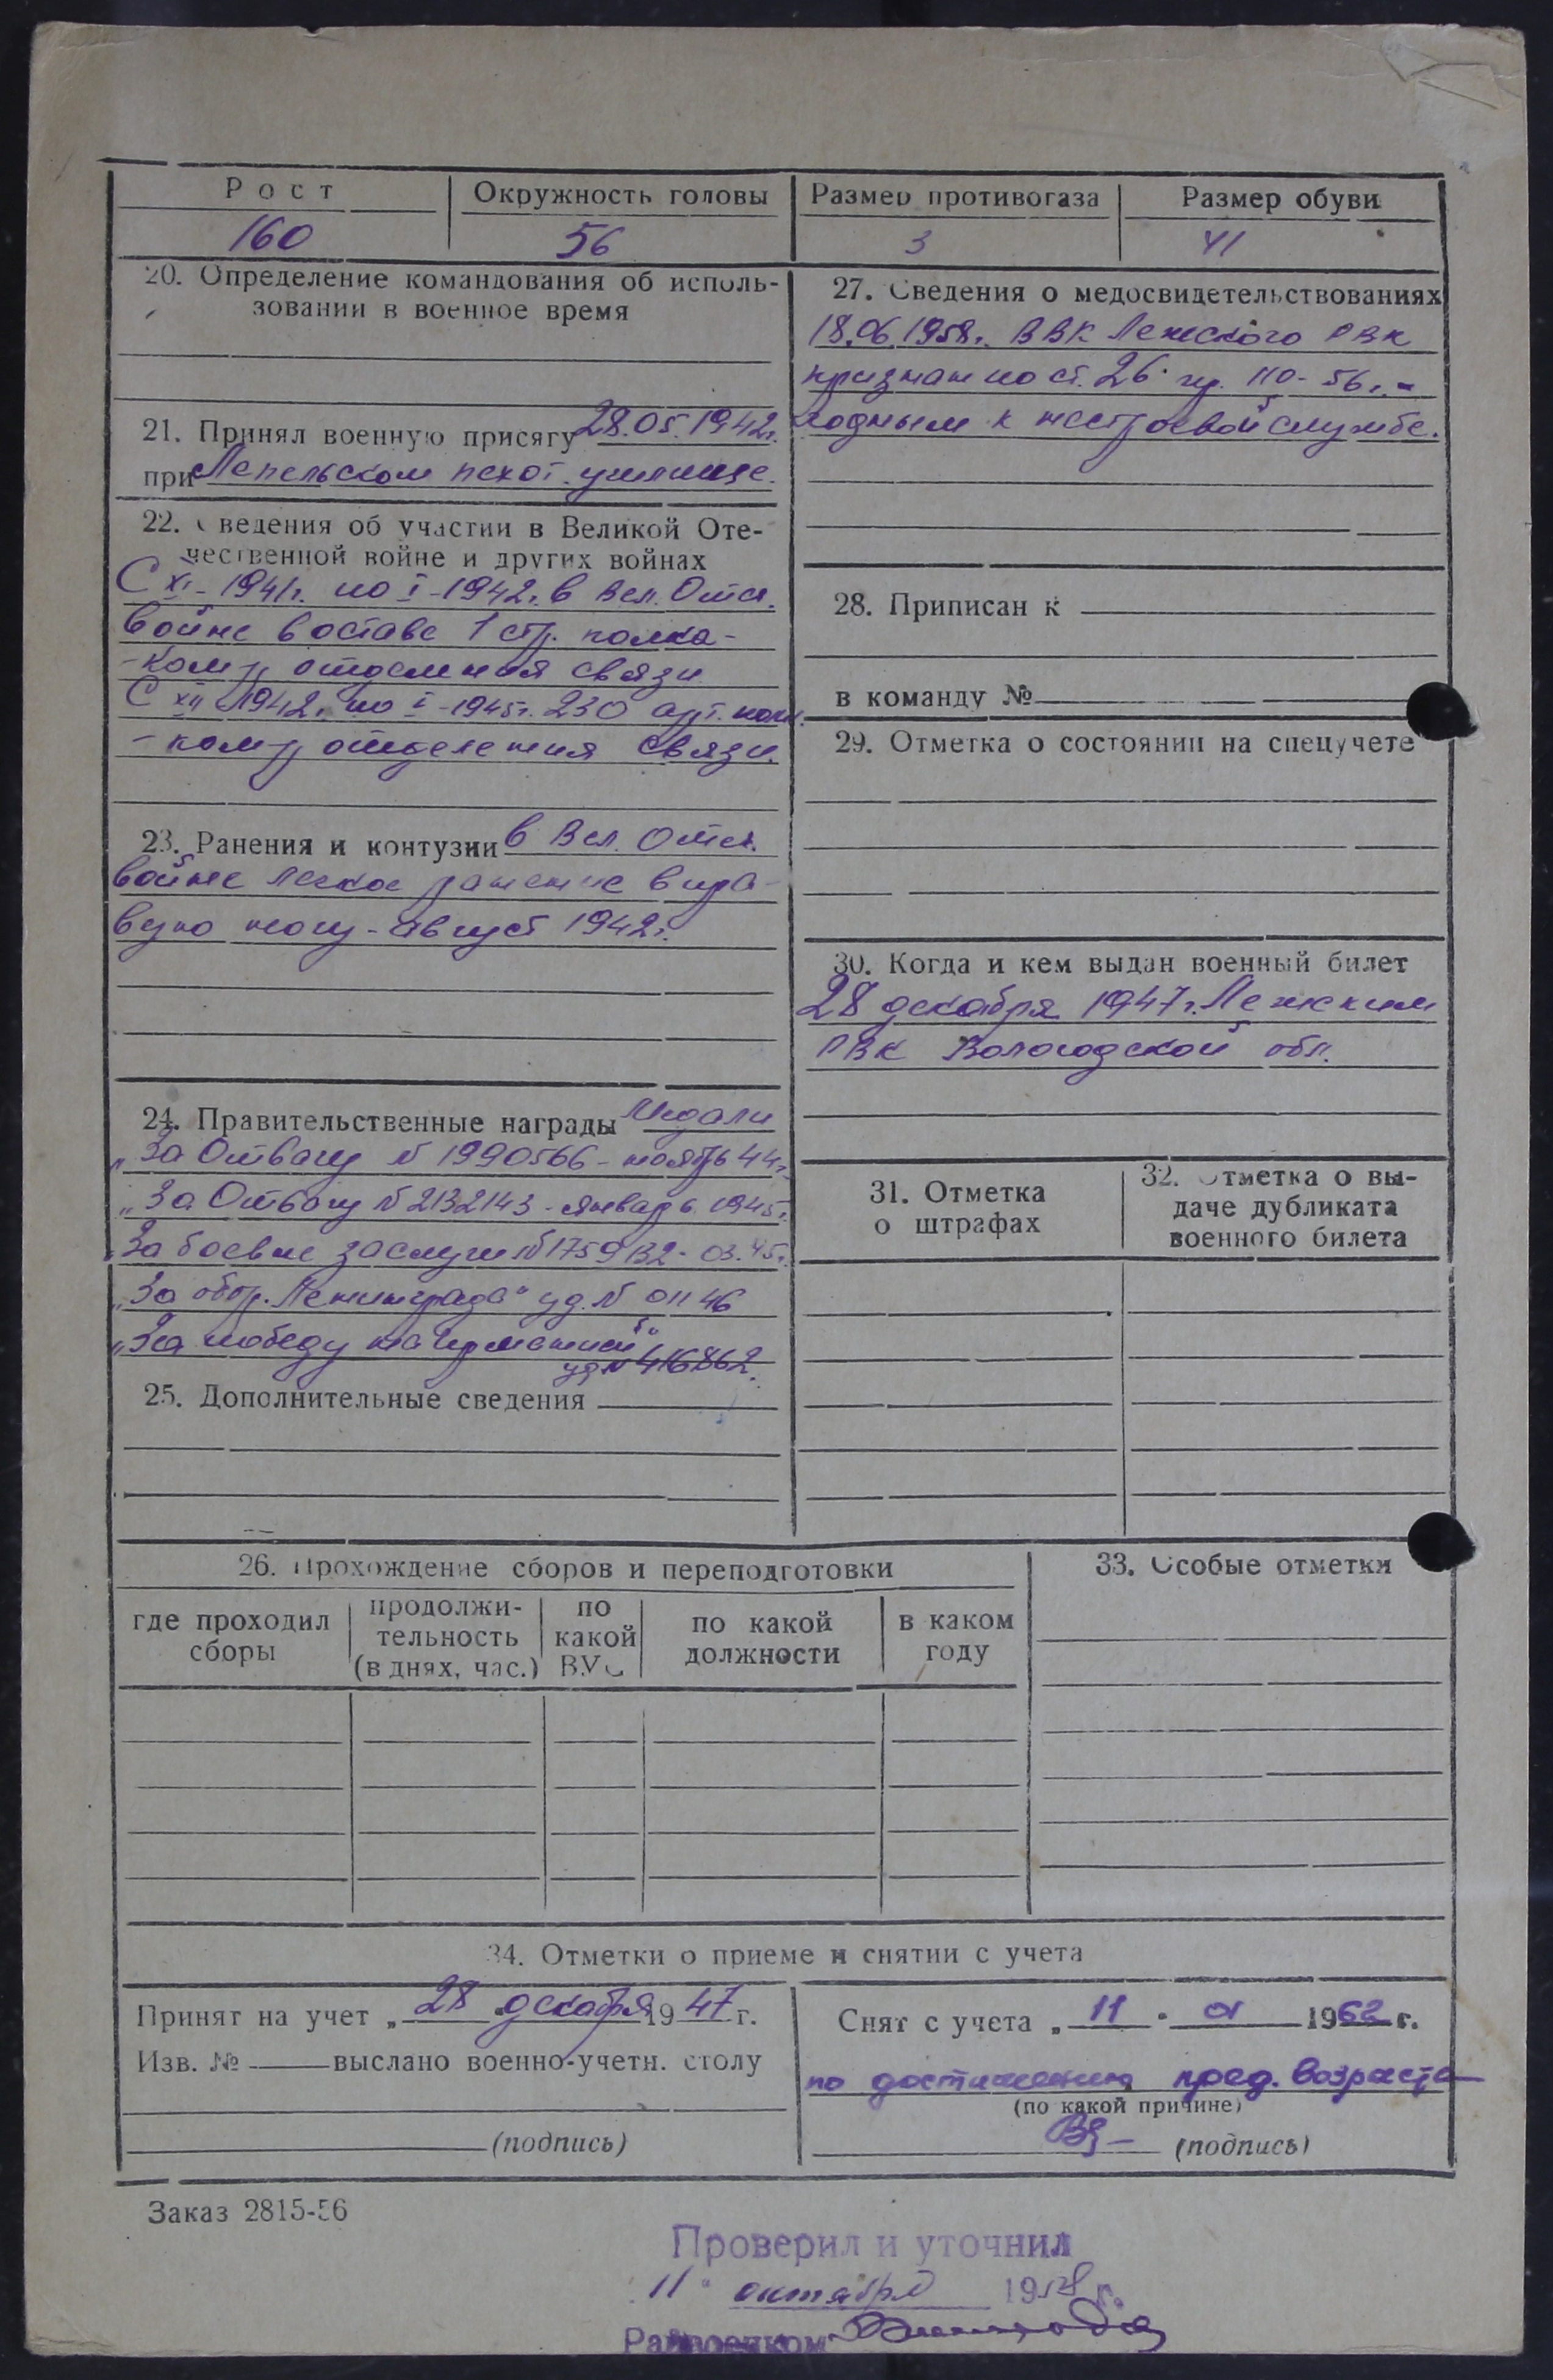 Рост Окружность головы Размер противогаза Размер обуви
160 56 3 41
20. Определение командования об исполь-
зовании в военное время
21. Принял военную присягу 28.05.1942г.
при Лепельском пехот. училище.
22. Сведения об участии в Великой Оте-
чественной войне и других войнах
С XI-1941г. по I-1942г. в Вел. Отеч.
войне в оставе 1 стр. полка -
- ком-р отделения связи
С XII-1942г. по I-1945г. 230 арт. полк.
- ком-р отделения связи.
23. Ранения и контузии в Вел. Отеч.
войне легкое ранение в пра-
вую ногу - август 1942г.
24. Правительственные награды Медали
„За Отвагу N 1990566 - ноябрь 44г.
„За Отвагу N 2132143 - январь 1945г.
„За боевые заслуги N 1759132 - 03.45г.
„За обор. Ленинграда" уд. N 01146
„За победу на Германией"
уд. N 416862.
25. Дополнительные сведения
27. Сведения о медосвидетельствованиях
18.06.1958г. ВВК Лежского РВК
признан по ст. 26 пр. 110-56г. -
годным к нестроевой службе.
28. Приписан к
в команду №
29. Отметка о состоянии на спецучете
30. Когда и кем выдан военный билет
28 декабря 1947г. Лежским
РВК Вологодской обл.
31. Отметка
о штрафах
32. Отметка о вы-
даче дубликата
военного билета
26. Прохождение сборов и переподготовки
где проходил
сборы
продолжи-
тельность
(в днях, час.)
по
какой
ВУС
по какой
должности
в каком
году
33. Особые отметки
34. Отметки о приеме и снятии с учета
Принят на учет „ 28 декабря 1947 г.
Изв. № выслано военно-учетн. столу
(подпись)
Снят с учета „ 11 " 01 1962 г.
по достижению пред. возраста
(по какой причине)
(подпись)
Заказ 2815-56
Проверил и уточнил
„11" октября 1958 г.
Райвоенком